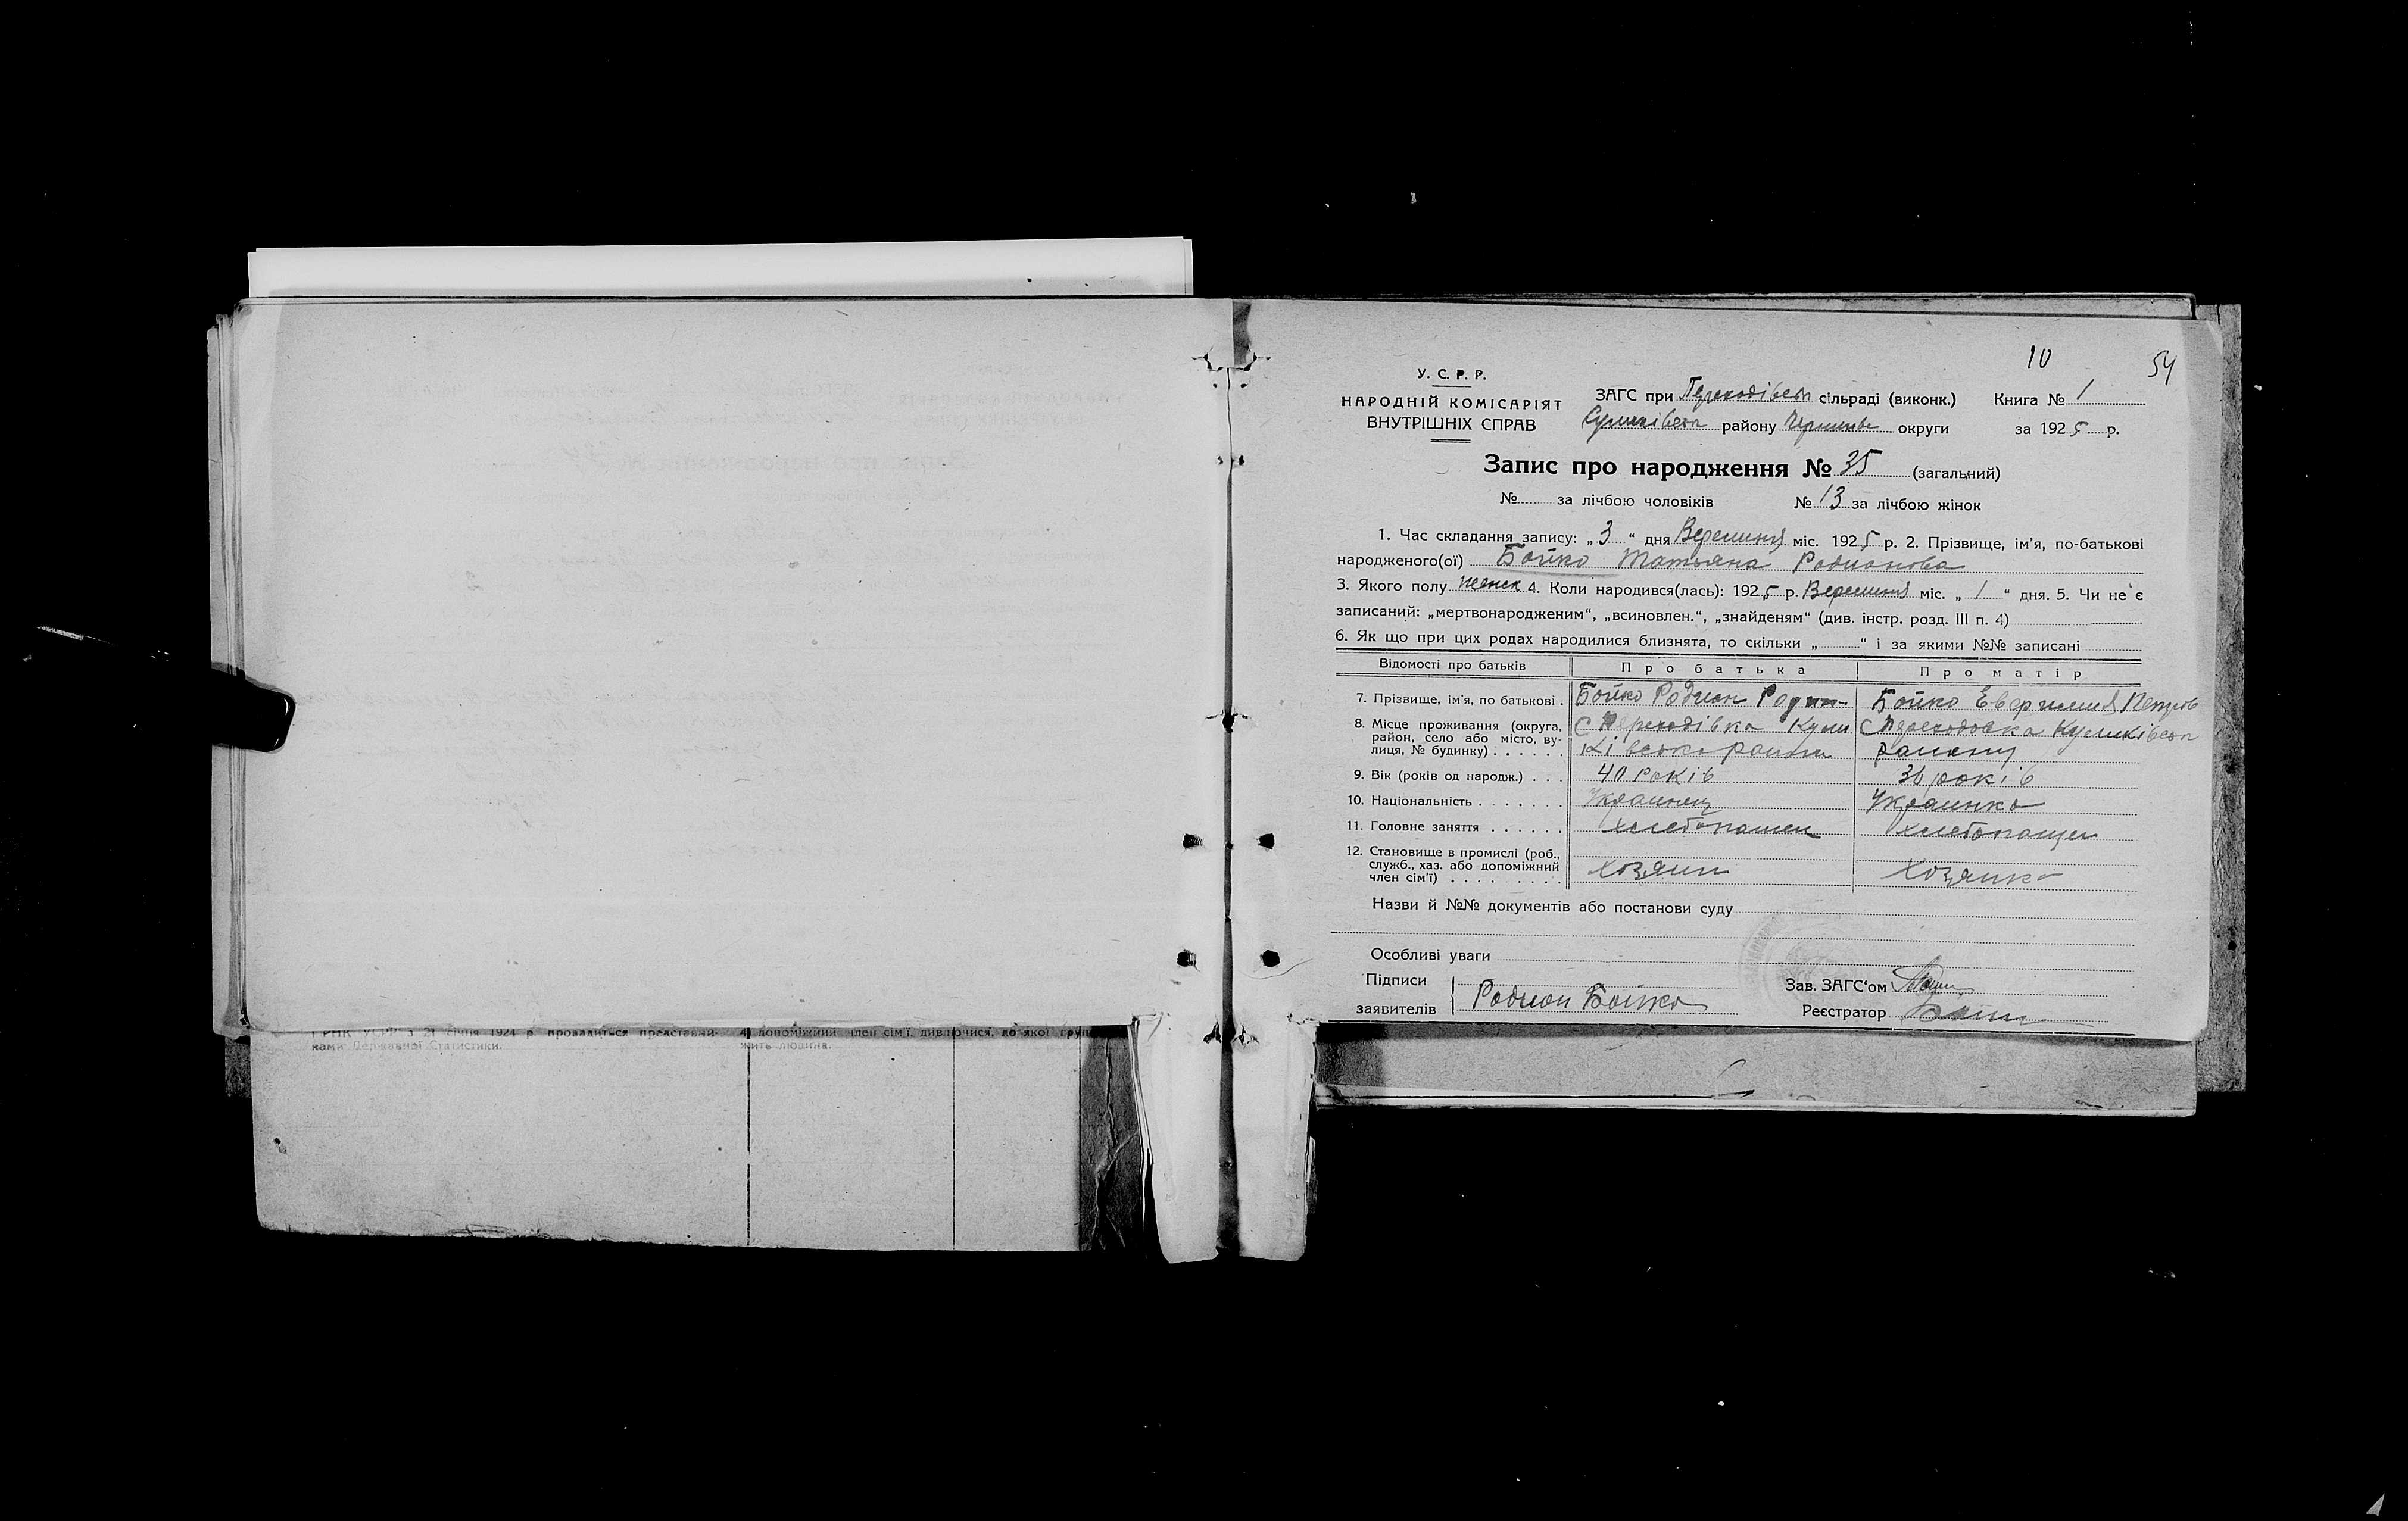 10
54
У. С. Р. Р.
НАРОДНІЙ КОМІСАРІЯТ
ВНУТРІШНІХ СПРАВ
ЗАГС при Переходівськ сільраді (виконк.) Книга № 1
Куликівськ району Чернигів округи за 1925 р.
Запис про народження № 35 (загальний)
№ за лічбою чоловіків № 13 за лічбою жінок
1. Час складання запису: „3“ дня Вересння міс. 1925 р. 2. Прізвище, ім'я, по-батькові
народженого(ої) Бойко Татьяна Родионова
3. Якого полу женск 4. Коли народився(лась): 1925 р. Вересння міс. „1“ дня. 5. Чи не є
записаний: „мертвонародженим“, „всиновлен.“, „знайденям“ (див. інстр. розд. III п. 4)
6. Як що при цих родах народилися близнята, то скільки „ “ і за якими №№ записані
Відомості про батьків Про батька Про матір
7. Прізвище, ім'я, по батькові . Бойко Родион Бойко Петров
8. Місце проживання (округа, С Переходівка Кули С Переходовка Куликівськ
район, село або місто, ву-
лиця, № будинку) . . . . . . ківська район району
9. Вік (років од народж.) . . . 40 років років
10. Національність . . . . . . . Украинец Украинка
11. Головне заняття . . . . . . хлебопашец хлебопашец
12. Становище в промислі (роб.,
служб., хаз. або допоміжний
член сім'ї) . . . . . . . . . Хозяин Хозяйка
Назви й №№ документів або постанови суду
Особливі уваги
Підписи
заявителів Родион Бойко
Зав. ЗАГС'ом
Реєстратор
РНК УСРР з 21 січня 1924 р. провадиться представни-
ками Державної Статистики.
4) допоміжний член сім'ї, дивлючися, до якої груп
жить людина.